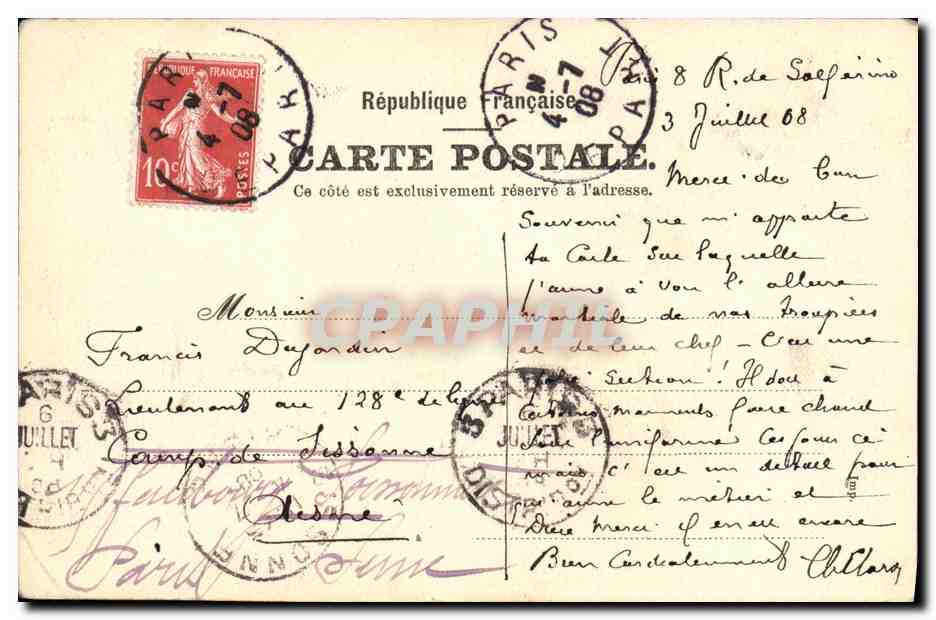 RÉPUBLIQUE FRANÇAISE
10c
POSTES
PARIS
4 - 7
08
DÉPART
PARIS
4 - 7
08
DÉPART
République Française
CARTE POSTALE.
Ce côté est exclusivement réservé à l'adresse.
8 R. de Solferino
3 Juillet 08
Merci du bon
Souvenir que m'apporte
ta Carte sur laquelle
j'aime à voir l'allure
martiale de nos troupiers
et de leur chef - C'est une
section! Il doit à
moments faire chaud
l'uniforme ces jours ci
mais c'est un détail pour
qui aime le métier et
Dieu merci il en est encore
Bien Cordialement
Monsieur
Francis Dujardin
Lieutenant au 128e de ligne
Camp de Sissonne
Aisne
faubourg
Paris Seine
PARIS 3
6
JUILLET
PARIS 3
JUILLET
SISSONNE
CPAPHIL
Imp.